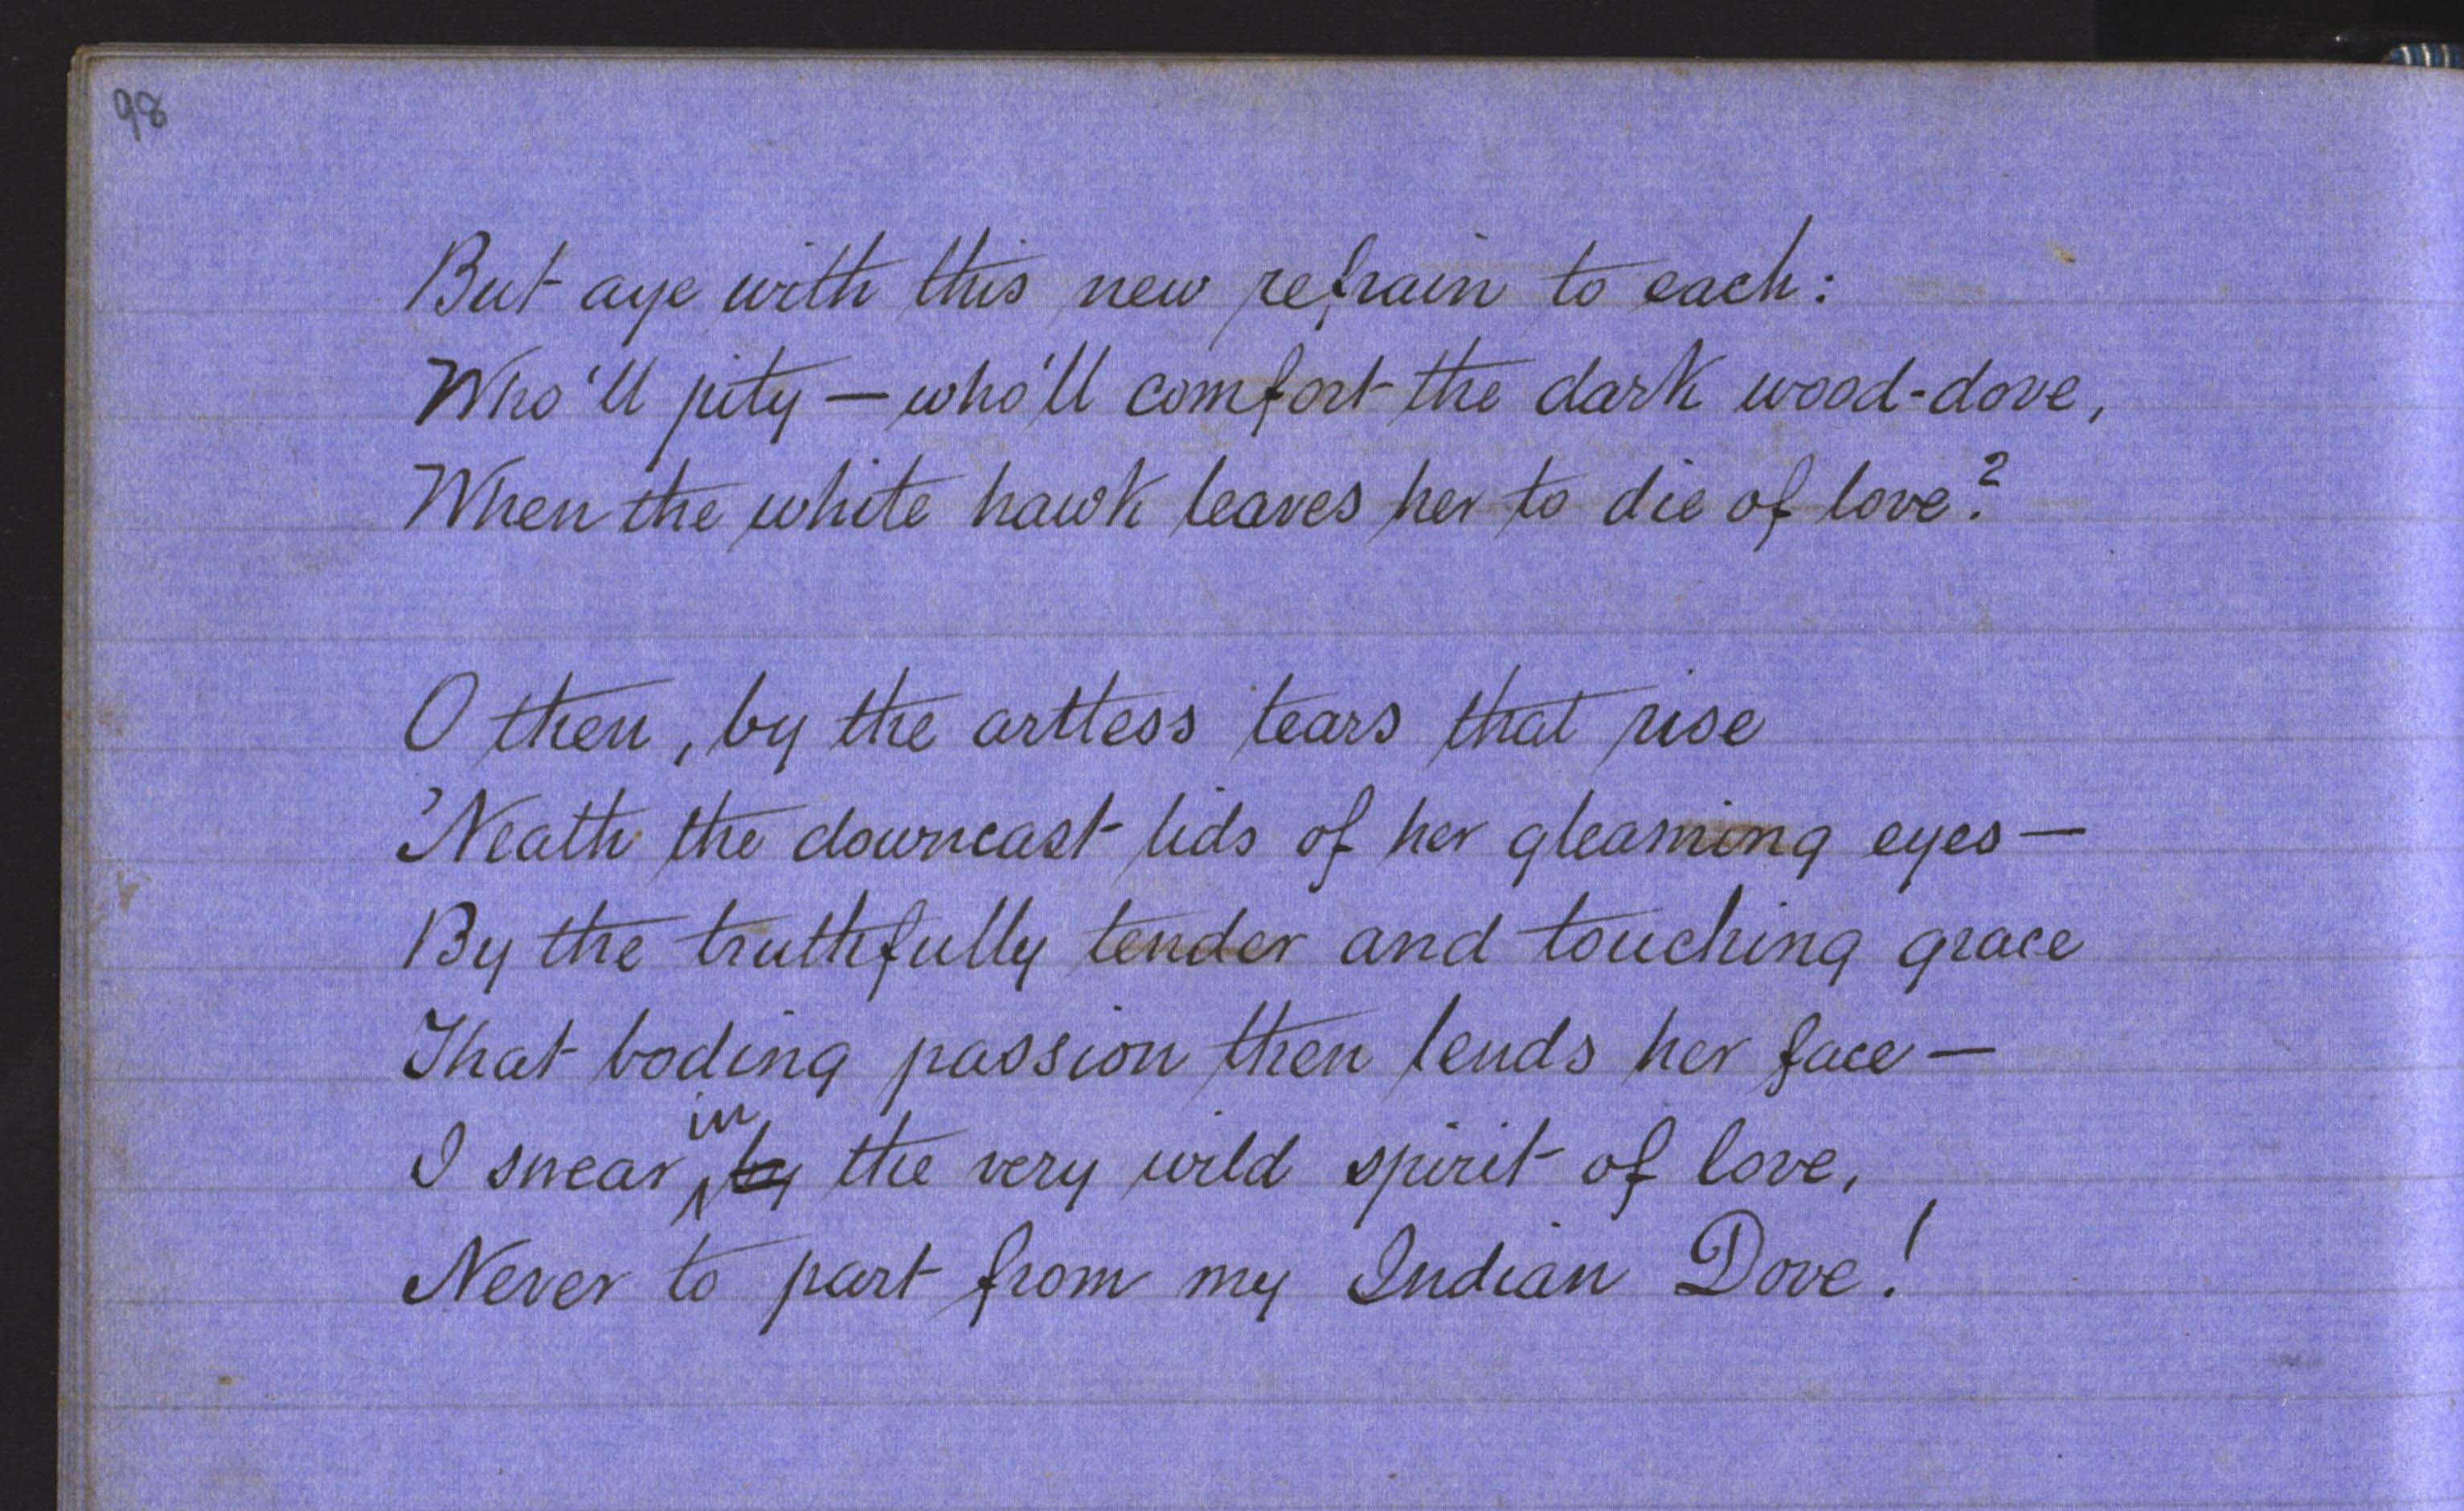 98
But aye with this new refrain to each:
Who'll pity — who'll comfort the dark wood-dove,
When the white hawk leaves her to die of love?
O then, by the artless tears that rise
'Neath the downcast lids of her gleaming eyes —
By the truthfully tender and touching grace
That boding passion then lends her face —
in
I swear by the very wild spirit of love,
Never to part from my Indian Dove!